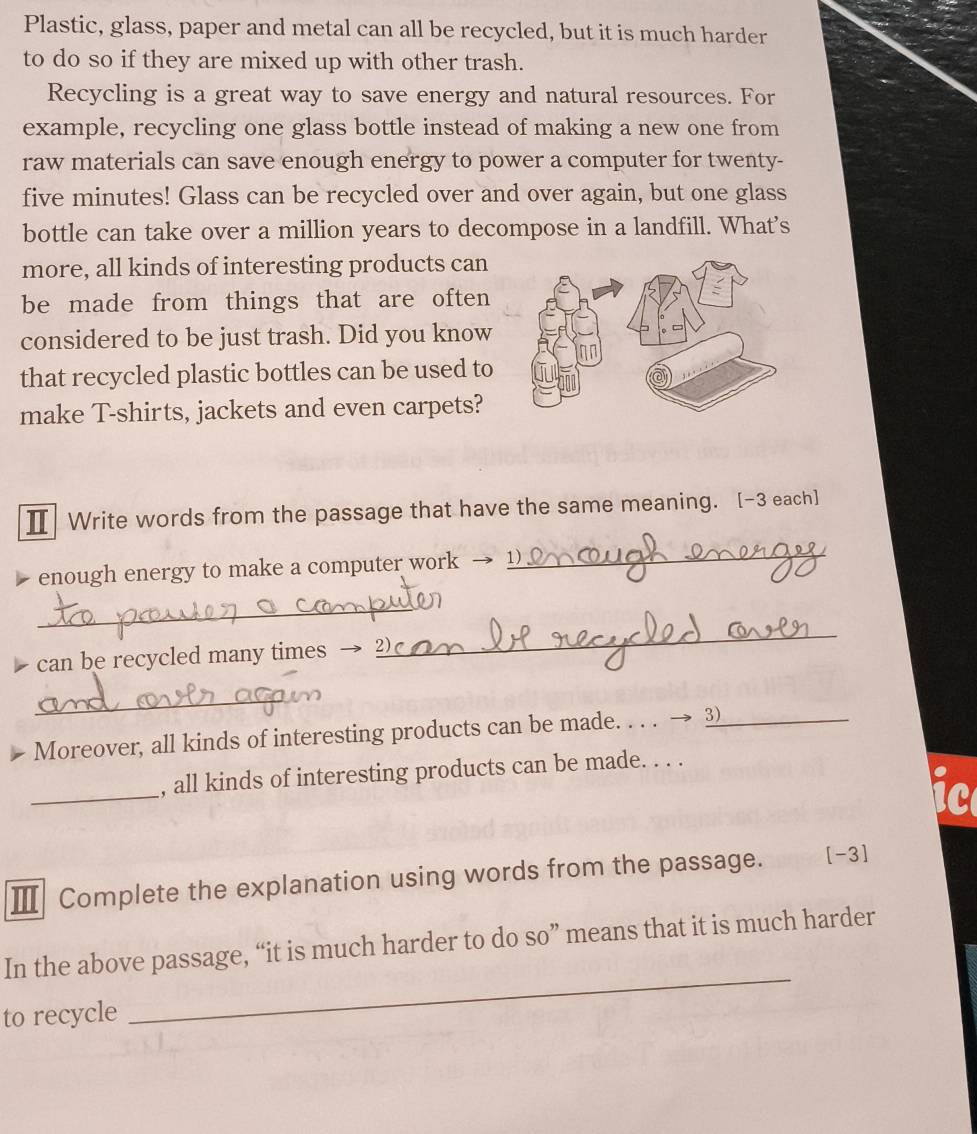 Plastic, glass, paper and metal can all be recycled, but it is much harder
to do so if they are mixed up with other trash.
Recycling is a great way to save energy and natural resources. For
example, recycling one glass bottle instead of making a new one from
raw materials can save enough energy to power a computer for twenty-
five minutes! Glass can be recycled over and over again, but one glass
bottle can take over a million years to decompose in a landfill. What's
more, all kinds of interesting products can
be made from things that are often
considered to be just trash. Did you know
that recycled plastic bottles can be used to
make T-shirts, jackets and even carpets?
II Write words from the passage that have the same meaning. [-3 each]
▶ enough energy to make a computer work → 1) enough energy
to power a computer
▶ can be recycled many times → 2) can be recycled over
and over again
▶ Moreover, all kinds of interesting products can be made. . . . → 3)
, all kinds of interesting products can be made. . . .
ic
III Complete the explanation using words from the passage. [-3]
In the above passage, "it is much harder to do so" means that it is much harder
to recycle